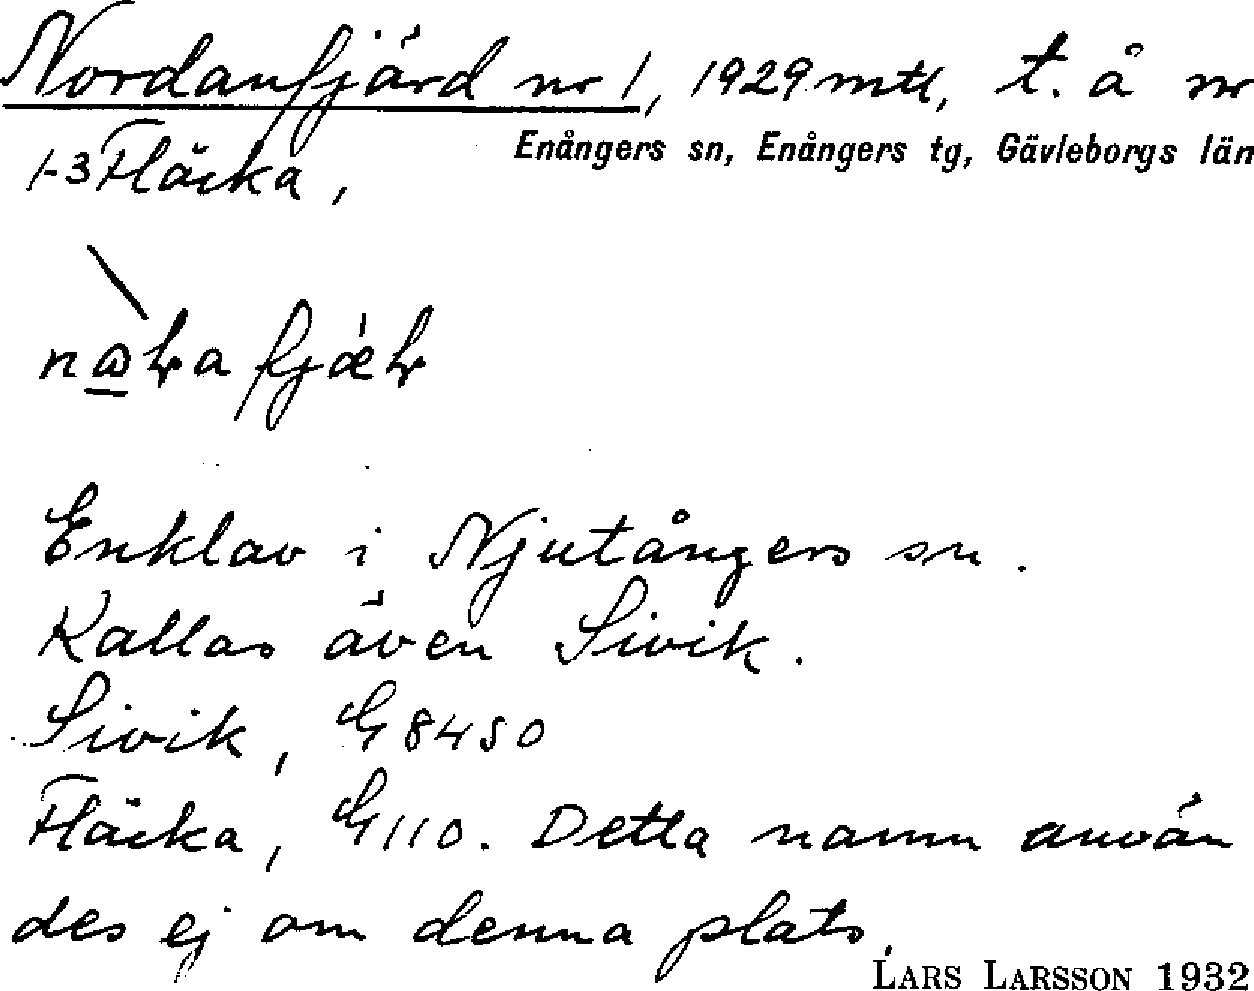 Nordanfjärd nr 1, 1929 mtl, t. å nr
1-3 Fläcka,
Enångers sn, Enångers tg, Gävleborgs län
Enklav i Njutångers sn.
Kallas även Sivik.
Sivik, G 8450
Fläcka, G 110. Detta namn använ
des ej om denna plats.
LARS LARSSON 1932